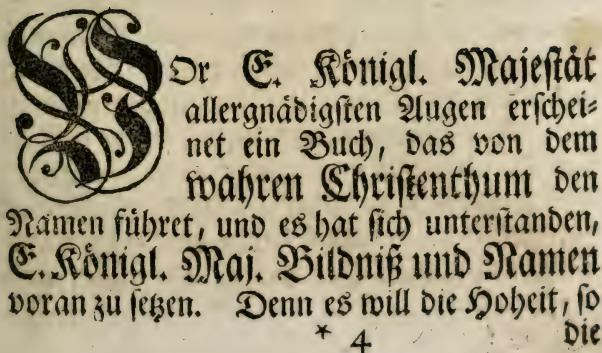 VOr E. Königl. Majestät
allergnädigsten Augen erschei⸗
net ein Buch, das von dem
wahren Christenthum den
Namen führet, und es hat sich unterstanden,
E. Königl. Maj. Bildniß und Namen
voran zu setzen. Denn es will die Hoheit, so
* 4 die